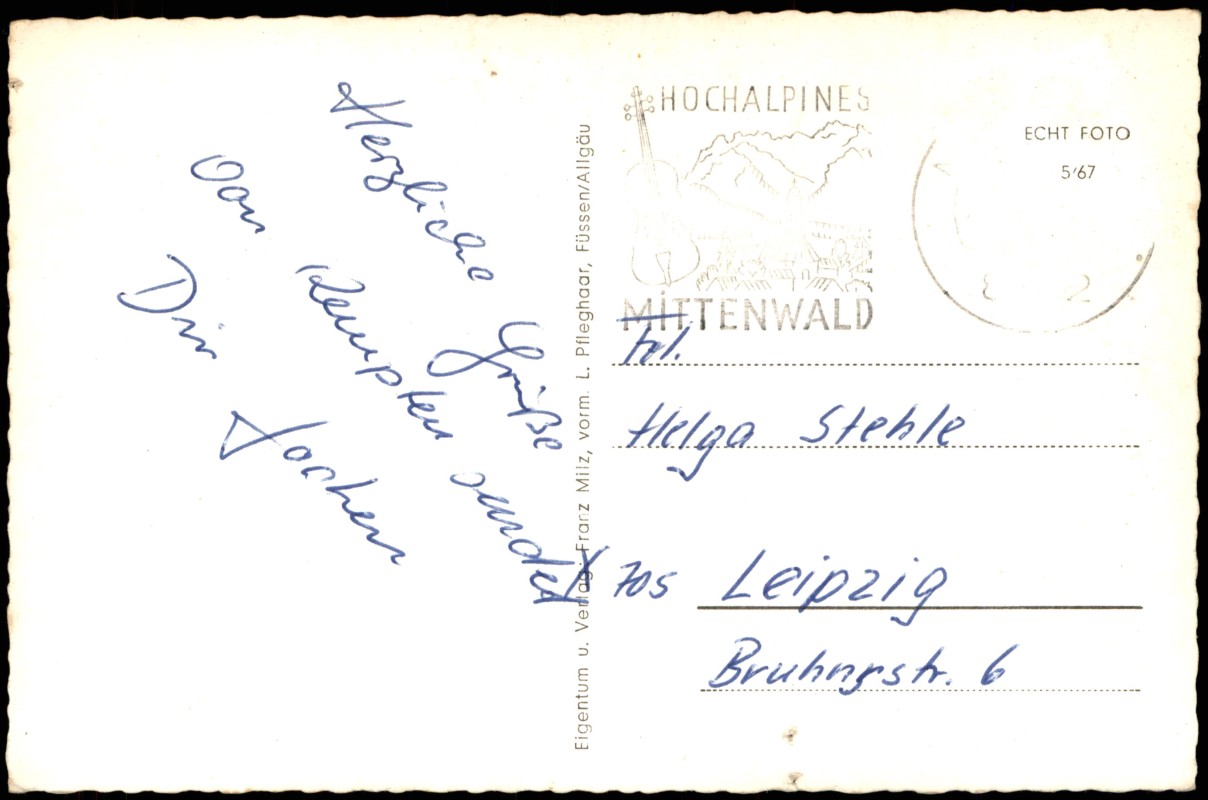 Herzliche Grüße
von Kempten sendet
Dir
Jochen
Eigentum u. Verlag: Franz Milz, vorm. L. Pfleghaar, Füssen/Allgäu
HOCHALPINES
MITTENWALD
ECHT FOTO
5/67
Frl.
Helga Stehle
X 705 Leipzig
Bruhnsstr. 6